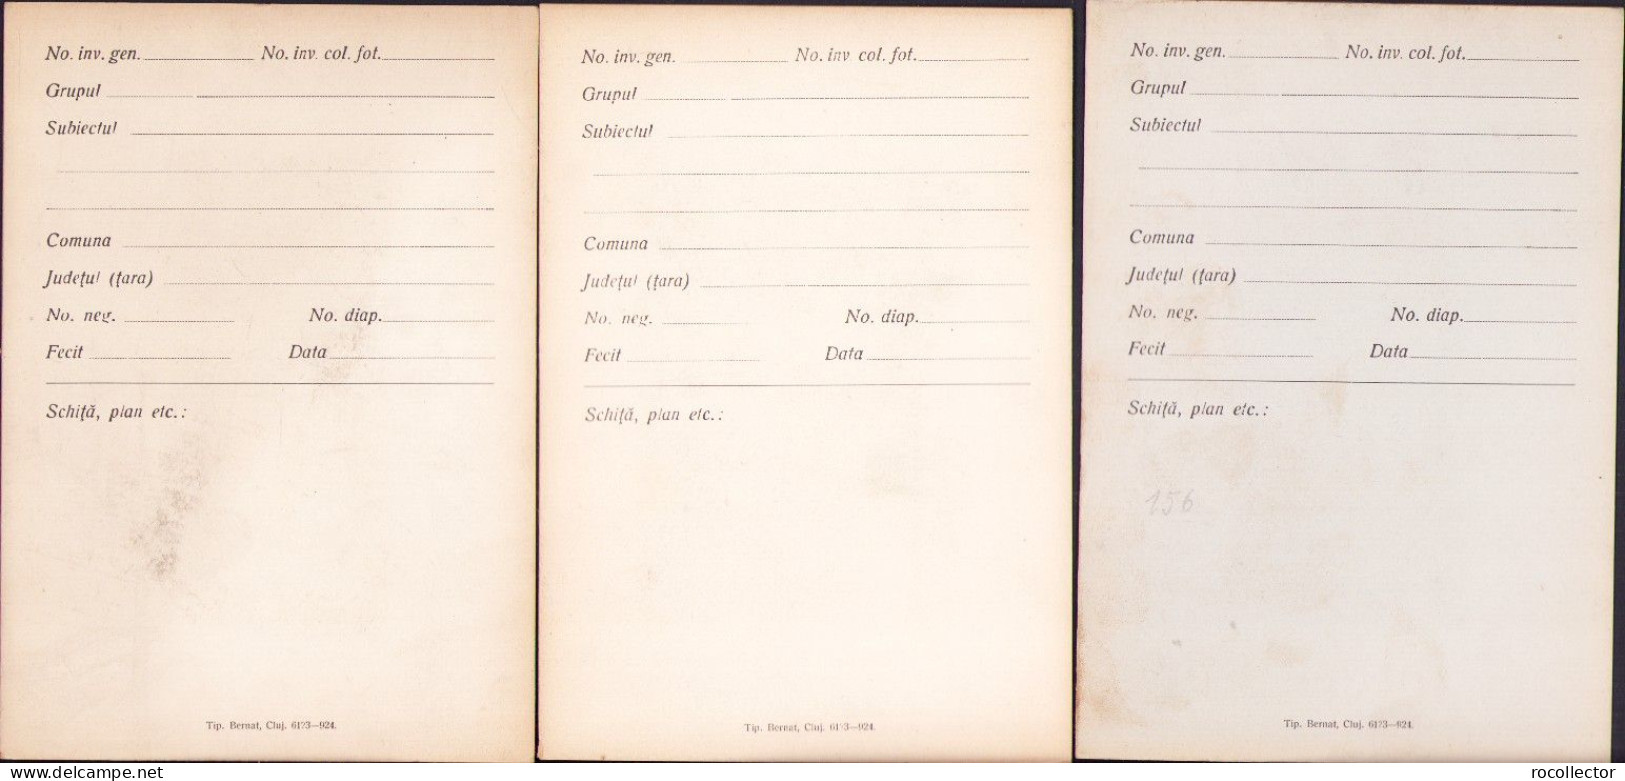 No. inv. gen. No. inv. col. fot.
Grupul
Subiectul
Comuna
Județul (țara)
No. neg. No. diap.
Fecit Data
Schiță, plan etc.:
Tip. Bernat, Cluj. 6173—924.
No. inv. gen. No. inv col. fot.
Grupul
Subiectul
Comuna
Județul (țara)
No. neg. No. diap.
Fecit Data
Schiță, plan etc.:
Tip. Bernat, Cluj. 6173—924.
No. inv. gen. No. inv. col. fot.
Grupul
Subiectul
Comuna
Județul (țara)
No. neg. No. diap.
Fecit Data
Schiță, plan etc.:
156
Tip. Bernat, Cluj. 6173—924.
www.delcampe.net rocollector